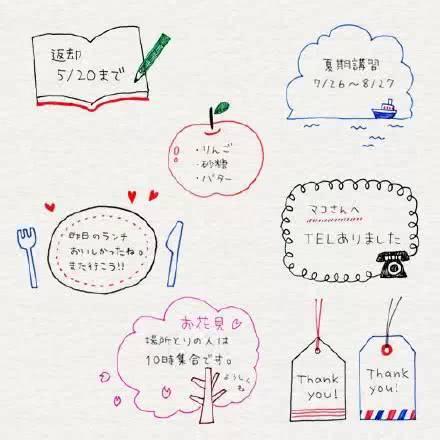 返却
5/20まで
夏期講習
7/26〜8/27
・りんご
・砂糖
・バター
昨日のランチ
おいしかったね。
また行こう!!
マコさんへ
TELありました
お花見
場所とりの人は
10時集合です。
よろしくね
Thank
you!
Thank
you!